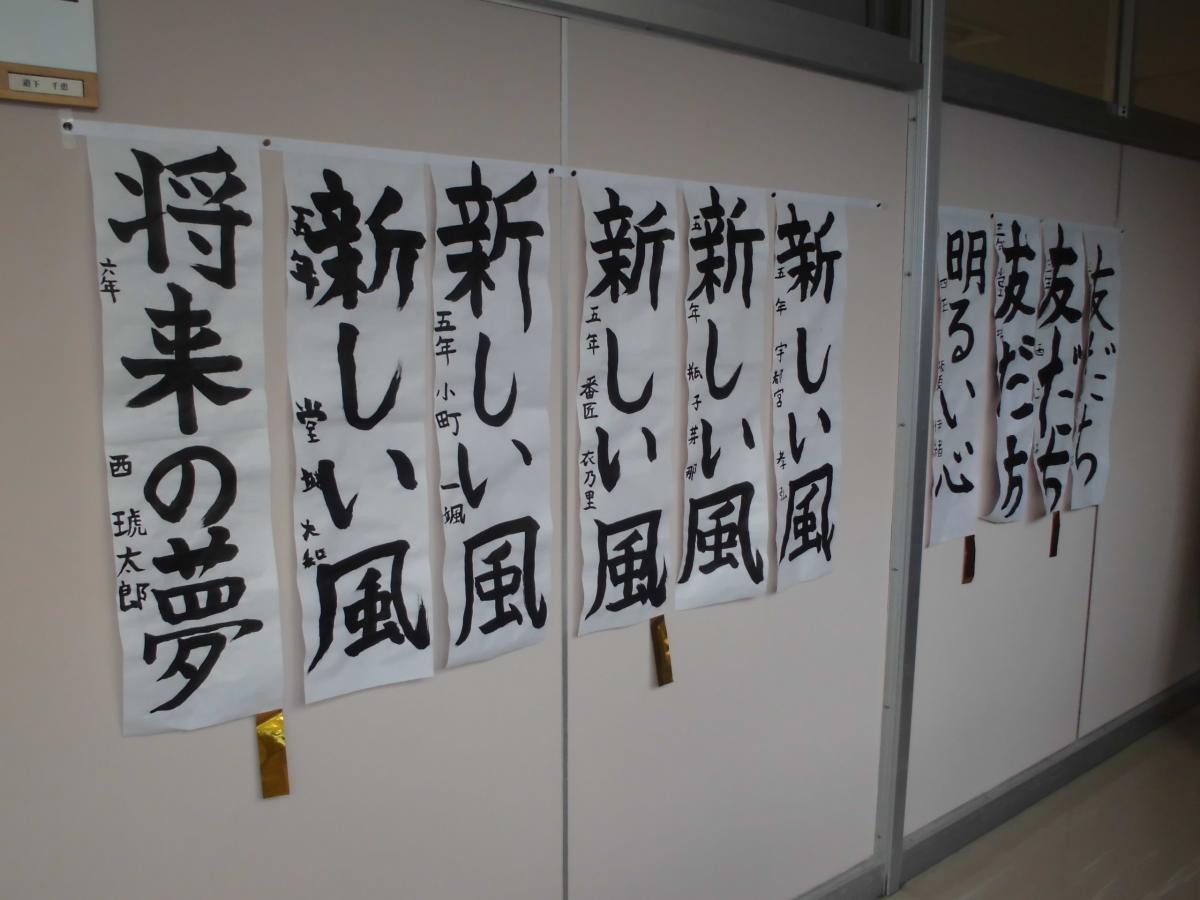 道下 千恵
将来の夢
六年 西 琥太郎
新しい風
五年 堂城 大和
新しい風
五年 小町 一颯
新しい風
五年 番匠 衣乃里
新しい風
五年 瓶子 芽那
新しい風
五年 宇都宮 孝弘
明るい心
四年
友だち
三年 堂
友だち
三年
友だち